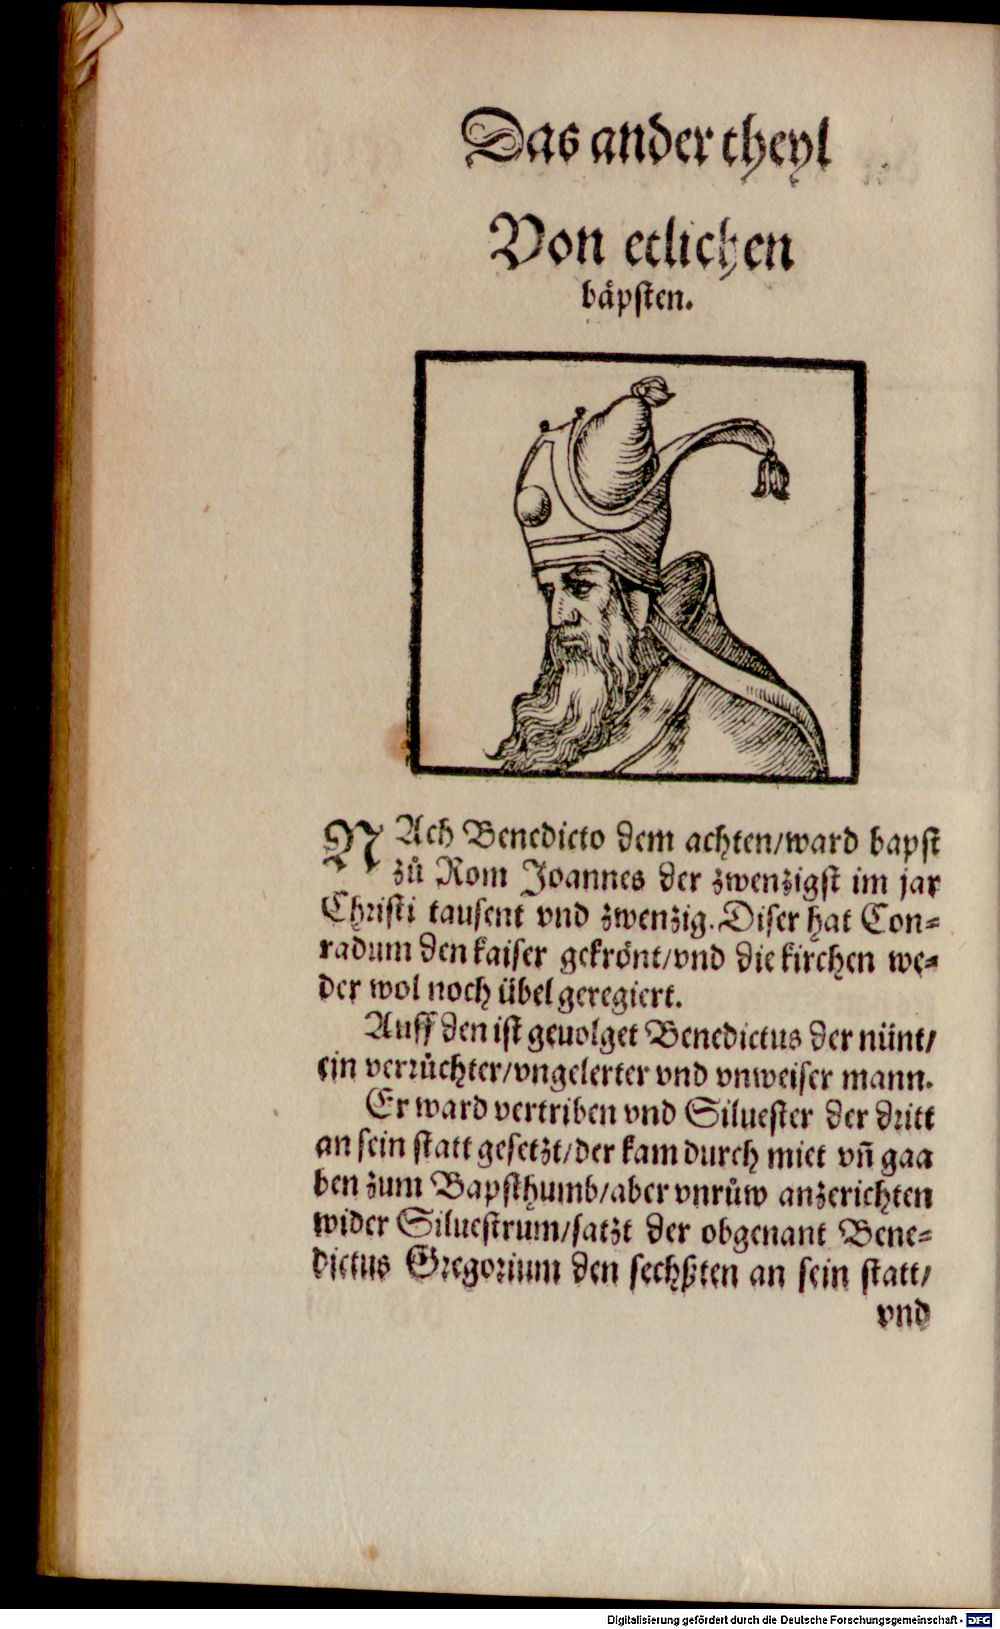 Das ander theyl
Von etlichen
bäpsten.
NAch Benedicto dem achten/ward bapst
zů Rom Joannes der zwenzigst im jar
Christi tausent vnd zwenzig. Diser hat Con=
radum den kaiser gekrönt/vnd die kirchen we=
der wol noch übel geregiert.
Auff den ist geuolget Benedictus der nünt/
ein verrůchter/vngelerter vnd vnweiser mann.
Er ward vertriben vnd Siluester der dritt
an sein statt gesetzt/der kam durch miet vñ gaa
ben zum Bapsthumb/aber vnrůw anzerichten
wider Siluestrum/satzt der obgenant Bene=
dictus Gregorium den sechßten an sein statt/
vnd
Digitalisierung gefördert durch die Deutsche Forschungsgemeinschaft - DFG